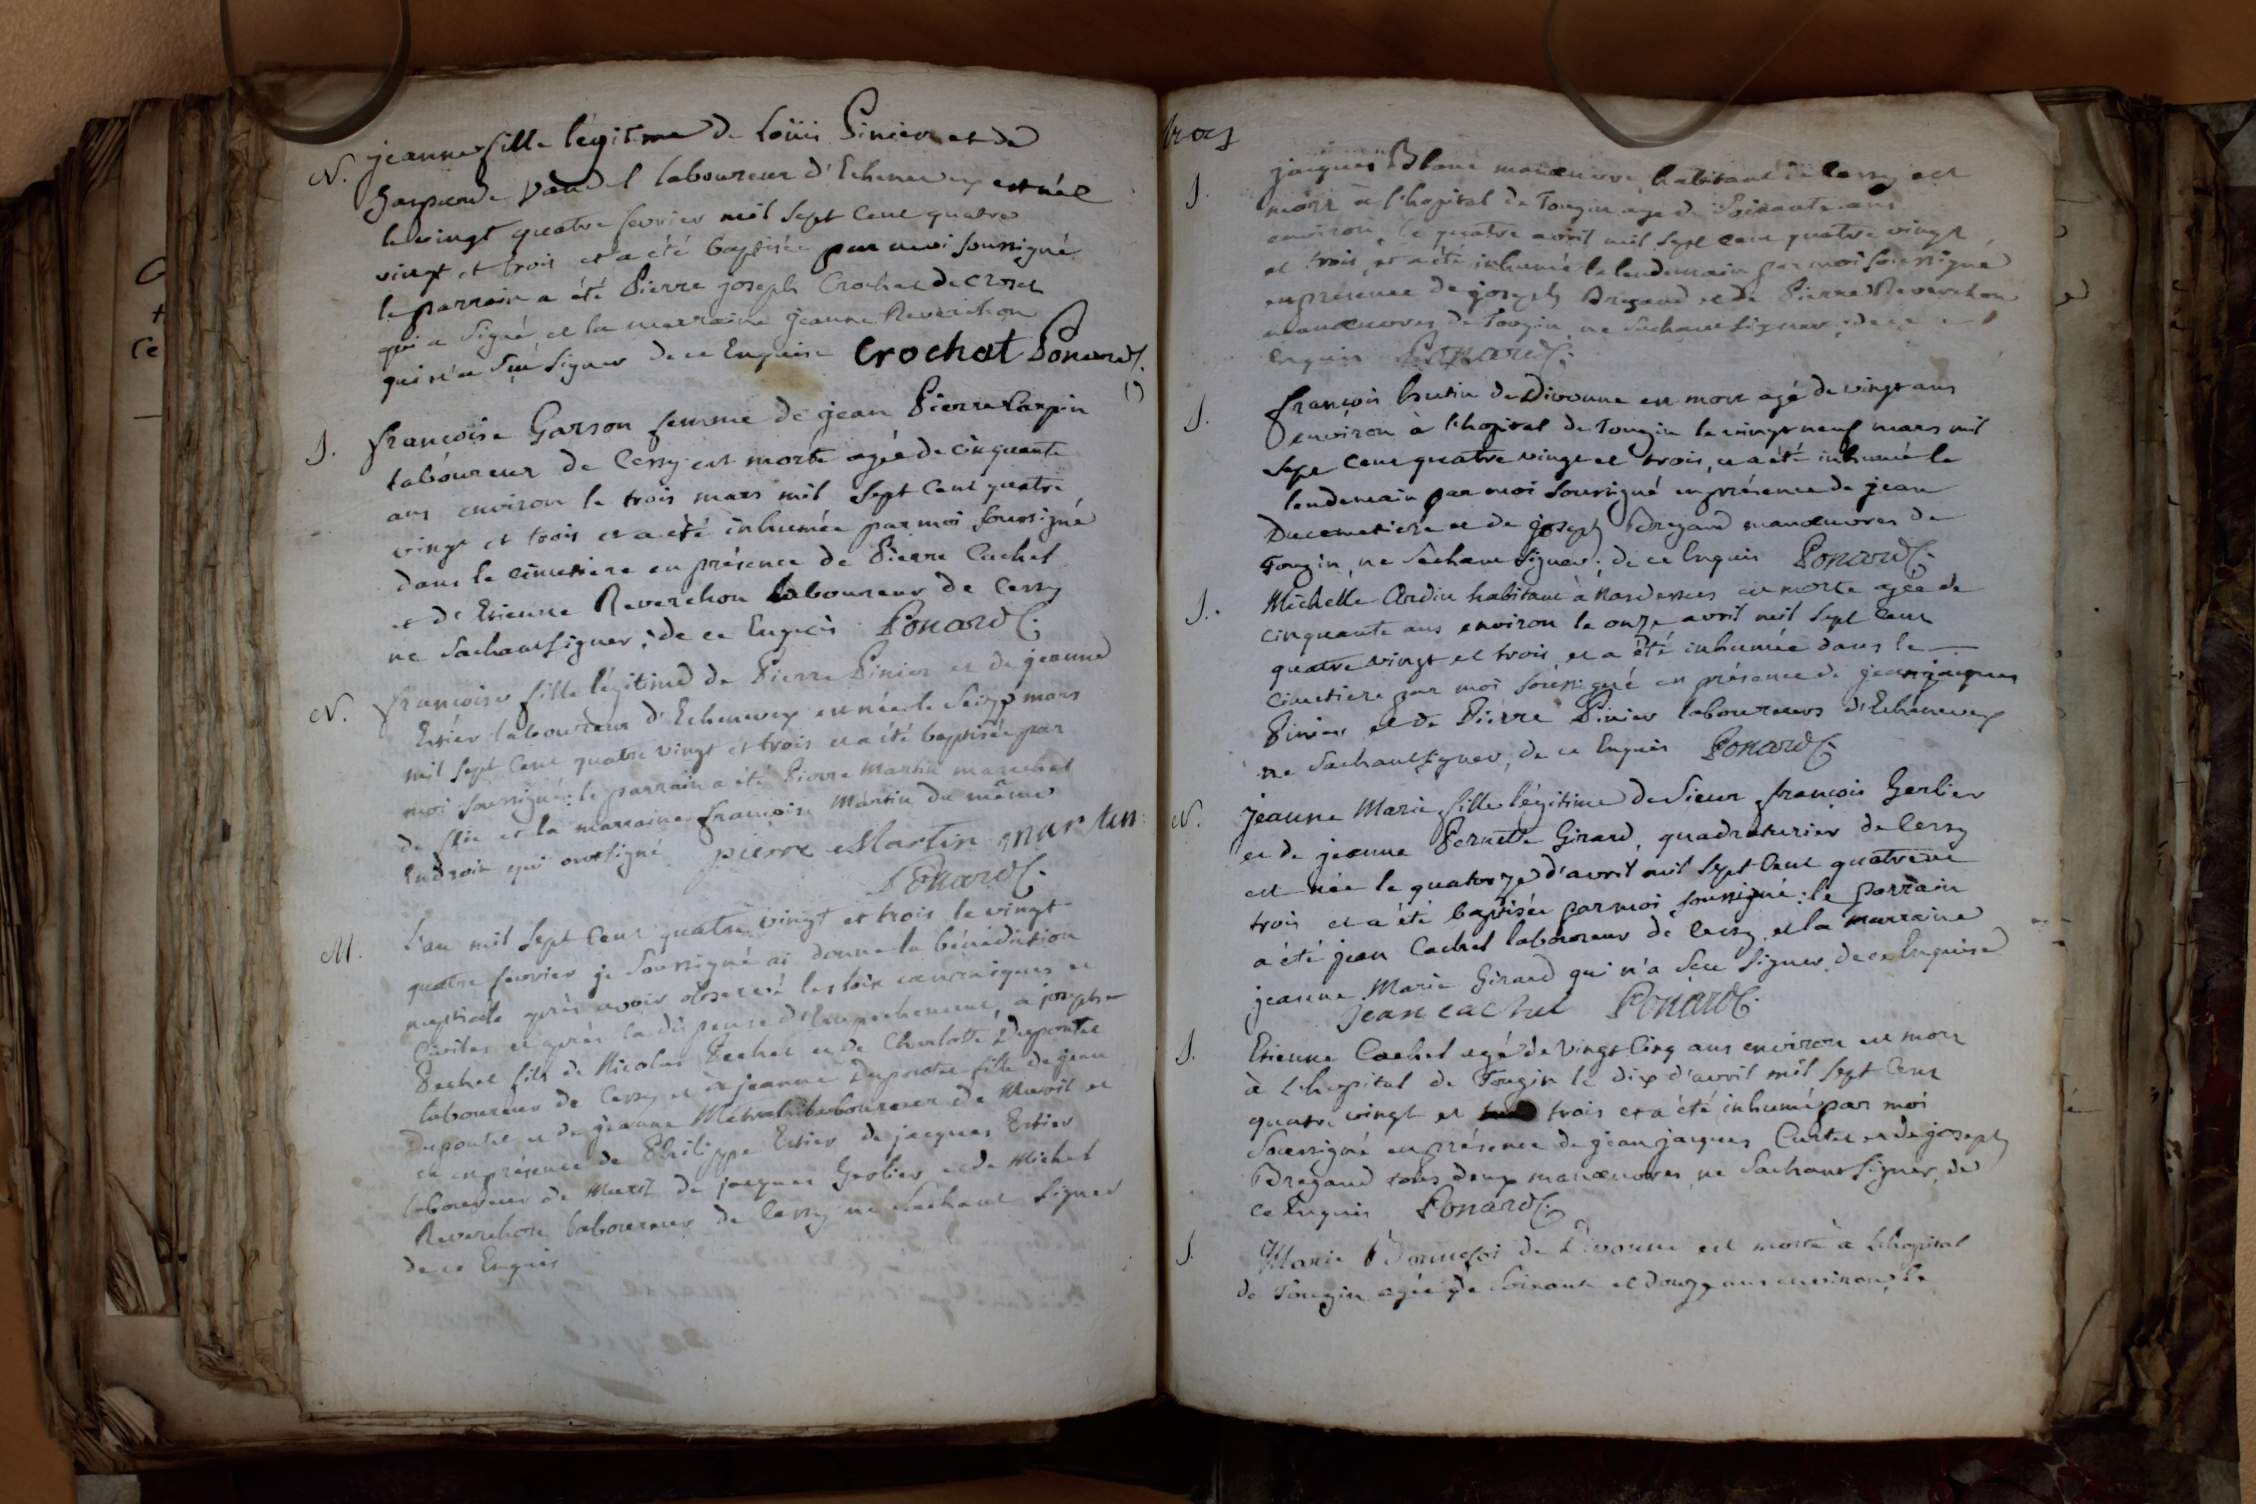 N. jeanne fille légitime de Loüis Pinier et de
Gasparde Vandel laboureur d'Echenevex est née
le vingt quatre fevrier mil sept cent quatre
vingt et trois et a été baptisée par moi soussigné
le parrain a été Pierre joseph Crochat de Crozet
qui a signé, et la marraine jeanne Reverchon
qui n'a sçu signer de ce Enquise Crochat Ponard C.
J. françoise Garson femme de jean Pierre Carpin
laboureur de Cessy est morte agée de cinquante
ans environ le trois mars mil sept cent quatre
vingt et trois et a été inhumée par moi soussigné
dans le cimetiere en présence de Pierre Cachet
et d'Etienne Reverchon laboureur de Cessy
ne sachant signer, de ce Enquis Ponard C.
N. françoise fille légitime de Pierre Pinier et de jeanne
Estier laboureur d'Echenevex est née le seize mars
mil sept cent quatre vingt et trois et a été baptisée par
moi soussigné: le parrain a été Pierre Martin marechal
de et la marraine françoise Martin du même
Endroit qui ont signé pierre Martin martin
Ponard C.
M. L'an mil sept cent quatre vingt et trois le vingt
quatre fevrier je soussigné ai donné la bénédiction
nuptiale après avoir observé les loix canoniques et
Civiles et après la dispense d'Empechement, à joseph
Pechet fils de Nicolas Pechet et de Charlotte Dupontet
laboureur de Cessy et à jeanne Dupontet fille de jean
Dupontet et de jeanne Métral laboureur de et
en présence de Philippe Estier de jacques Estier
laboureur de de jacques Grolier et de Michel
Reverchon laboureur de Cessy ne sachant signer
de ce Enquis
trois
J. jacques Blanc manœuvre, habitant à Cessy est
mort à l'hopital de Tougin agé de soixante ans
environ, le quatre avril mil sept cent quatre vingt
et trois, et a été inhumé le lendemain par moi soussigné
en présence de joseph Bregand et de Pierre Reverchon
manœuvres de Tougin, ne sachant signer, de ce
Enquis Ponard C.
J. françois hutin de Divonne est mort agé de vingt ans
environ à l'hopital de Tougin le vingt neuf mars mil
sept cent quatre vingt et trois, et a été inhumé le
lendemain par moi soussigné en présence de jean
Ducimetiere et de joseph Bregand manœuvres de
Tougin, ne sachant signer, de ce Enquis Ponard C.
J. Michelle Ardin habitant à est morte agée de
cinquante ans environ le onze avril mil sept cent
quatre vingt et trois, et a été inhumée dans le
cimetiere par moi soussigné en présence de jean jacques
Pinier et de Pierre Pinier laboureurs d'Echenevex
ne sachant signer, de ce Enquis Ponard C.
N. jeanne Marie fille légitime de Sieur françois Gerlier
et de jeanne Pernette Girard, quadraturier de Cessy
est née le quatorze d'avril mil sept cent quatre vt
trois et a été baptisée par moi soussigné: le parrain
a été jean Cachet laboureur de Cessy et la marraine
jeanne Marie Girard qui n'a sçu signer, de ce Enquise
jean cachet Ponard C.
J. Etienne Cachet agé de vingt cinq ans environ est mort
à l'hopital de Tougin le dix d'avril mil sept cent
quatre vingt et trois et a été inhumé par moi
soussigné en présence de jean jacques Curtet et de joseph
Bregand tous deux manœuvres ne sachant signer, de
ce Enquis Ponard C.
J. Marie Bonnefoi de Divonne est morte à l'hopital
de Tougin agée de soixante et douze ans environ, le